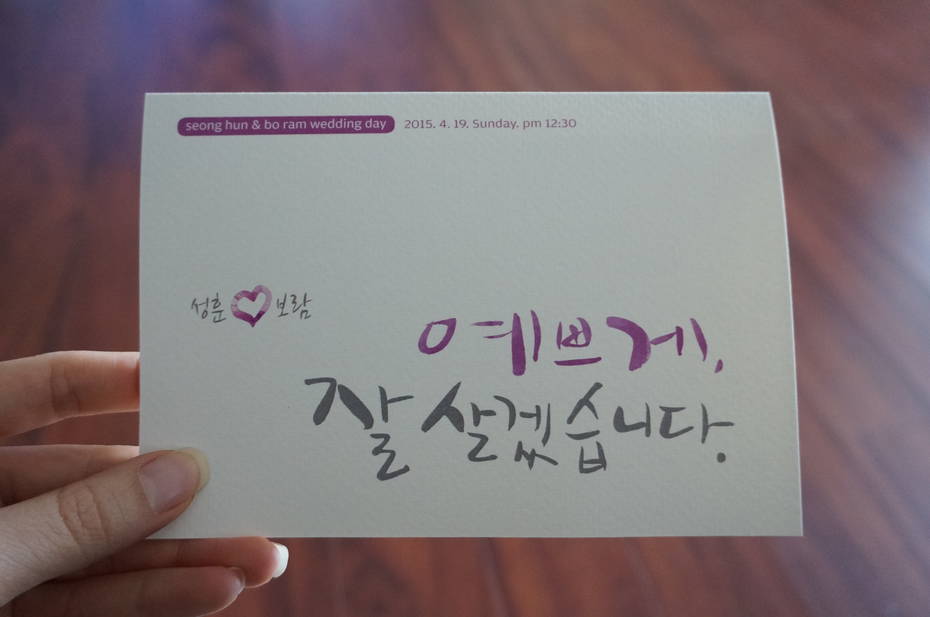 seong hun & bo ram wedding day 2015. 4. 19. Sunday. pm 12:30
성훈 보람
예쁘게,
잘 살겠습니다.